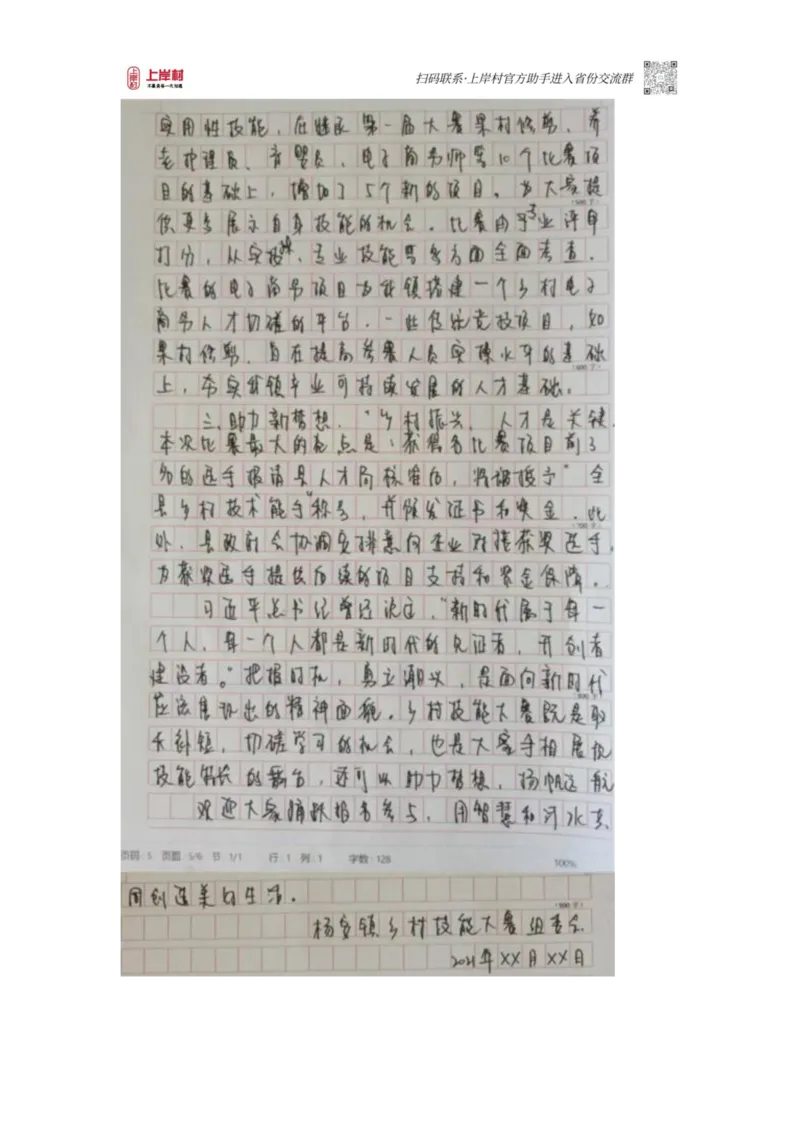 上岸村
不是上岸一天到晚
扫码联系·上岸村官方助手进入省份交流群
实用性技能，在延续第一届大赛果树修剪、养
老护理员、育婴员、电子商务师等10个比赛项
目的基础上，增加了5个新的项目。为大家提
供更多展示自身技能的机会。比赛由专业评审
打分，从实操、专业技能等多方面全面考查。
比赛的电子商务项目为我镇搭建一个乡村电子
商务人才切磋的平台。一些传统竞技项目，如
果树修剪，旨在提高参赛人员实操水平的基础
上，夯实我镇产业可持续发展的人才基础。
三、助力新梦想。“乡村振兴，人才是关键。
本次比赛最大的亮点是：获得各比赛项目前3
名的选手报请县人才局核准后，将被授予“全
县乡村技术能手”称号，并颁发证书和奖金。此
外，县政府会协调安排意向企业对接获奖选手，
为获奖选手提供后续的项目支持和资金保障。
习近平总书记曾经说过，“新时代属于每一
个人，每一个人都是新时代的见证者、开创者
建设者。”把握时机，勇立潮头，是面向新时代
应该展现出的精神面貌。乡村技能大赛既是取
长补短，切磋学习的机会，也是大家手相展现
技能特长的舞台，还可以助力梦想，扬帆远航
欢迎大家踊跃报名参与，用智慧和汗水共
(500字)
(600字)
(700字)
(800字)
页码：5 页面：5/6 节 1/1 行：1 列：1 字数：128 100%
同创造美好生活。
(900字)
杨家镇乡村技能大赛组委会
2021年XX月XX日